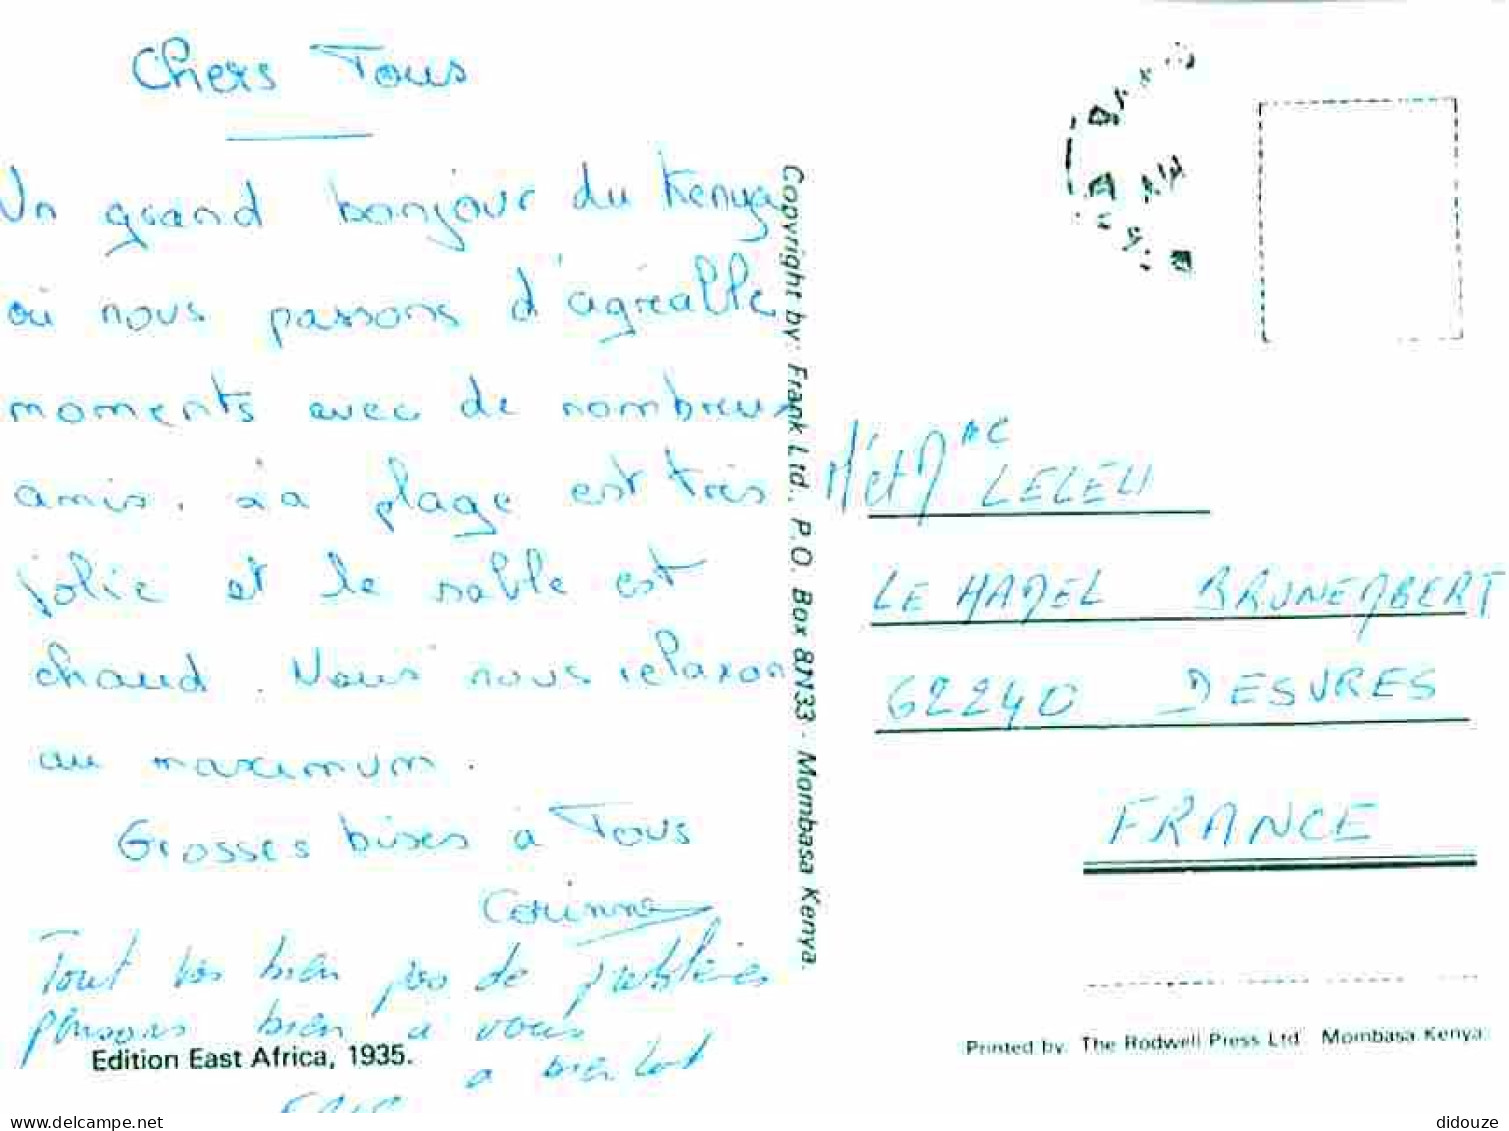 Chers Tous
Un grand bonjour du Kenya
où nous passons d'agréable
moments avec de nombreux
amis. La plage est très
jolie et le sable est
chaud. Nous nous relaxon
au maximum.
Grosses bises à Tous
Corinne
Tout va bien pas de problèmes
pensons bien a vous
a bientot
Edition East Africa, 1935.
Copyright by: Frank Ltd., P.O. Box 81133 - Mombasa Kenya.
M et Mme LELEU
LE HAMEL BRUNEMBERT
62240 DESVRES
FRANCE
Printed by: The Rodwell Press Ltd. Mombasa Kenya.
delcampe.net
didouze